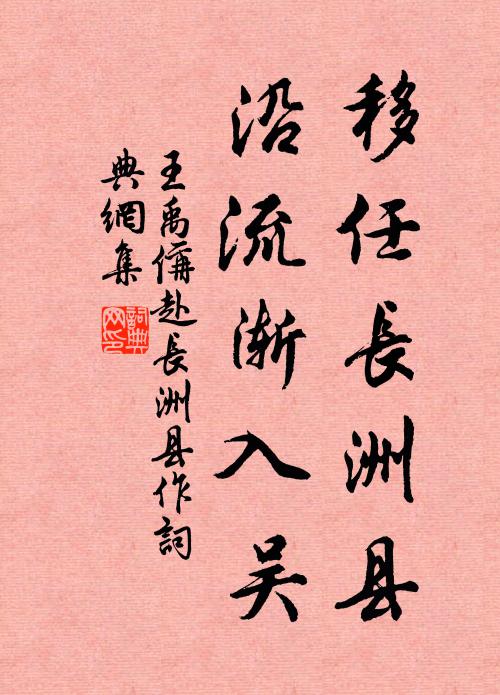 移任長洲县
沿流渐入吴
王禹偁赴長洲县作詞
典網集
詞典网印